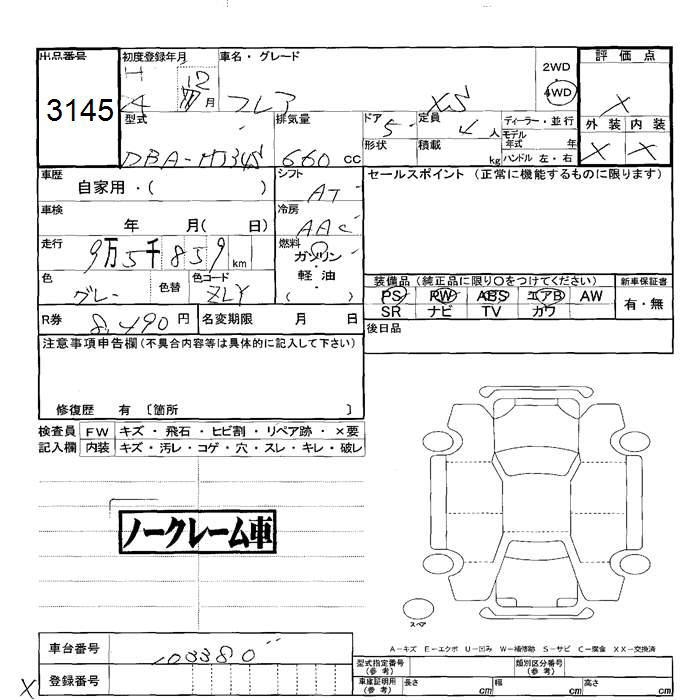 出品番号 初度登録年月 車名・グレード 評価点
3145
H 24 年 12 月 フレア XS
2WD
4WD
X
型式 排気量 ドア 5 定員 4 人 ディーラー・並行 外装 内装
形状 積載 kg モデル年式 年 X X
DBA-MJ34S 660 CC ハンドル 左・右
車歴 シフト セールスポイント (正常に機能するものに限ります)
自家用・( ) AT
車検 冷房
年 月( 日) AAC
走行 燃料
9万5千859 km ガソリン・軽油
( )
色 グレー 色替 色コード ZLY
装備品 (純正品に限り○をつけてください) 新車保証書
PS PW ABS エアB AW 有・無
SR ナビ TV カワ
R券 8,490 円 名変期限 月 日
後日品
注意事項申告欄(不具合内容等は具体的に記入して下さい)
修復歴 有 〔箇所 〕
検査員 FW キズ・飛石・ヒビ割・リペア跡・×要
記入欄 内装 キズ・汚レ・コゲ・穴・スレ・キレ・破レ
ノークレーム車
スペア
A-キズ E-エクボ U-凹み W-補修跡 S-サビ C-腐食 XX-交換済
車台番号 103380
登録番号
X
型式指定番号(参考) 類別区分番号(参考)
車庫証明用(参考) 長さ cm 幅 cm 高さ cm